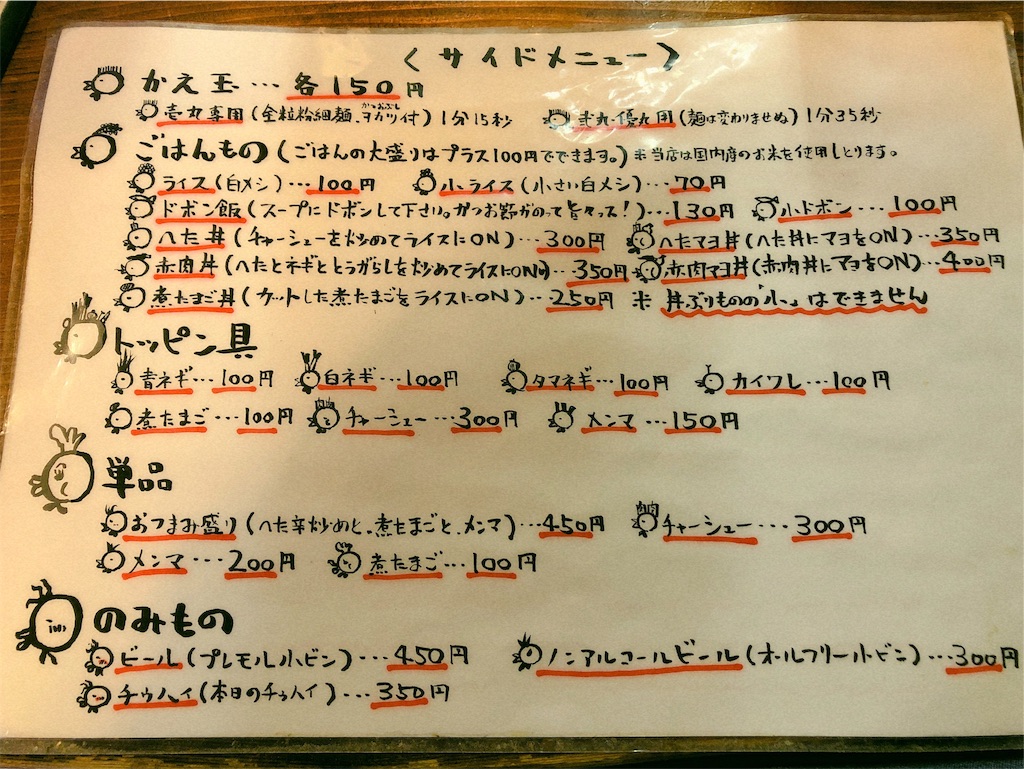 〈サイドメニュー〉
かえ玉…各150円
壱丸専用(全粒粉細麺、マカツ付)1分15秒 弐丸・優丸用(麺は変わりませぬ)1分35秒
ごはんもの(ごはんの大盛りはプラス100円でできます。)※当店は国内産のお米を使用しとります。
ライス(白メシ)…100円 小ライス(小さい白メシ)…70円
ドボン飯(スープにドボンして下さい。かつお節がのって旨々っス!)…130円 小ドボン…100円
へた丼(チャーシューを炒めてライスにON)…300円 へたマヨ丼(へた丼にマヨをON)…350円
赤肉丼(へたとネギととうがらしを炒めてライスにON)…350円 赤肉マヨ丼(赤肉丼にマヨをON)…400円
煮たまご丼(カットした煮たまごをライスにON)…250円 ※丼ぶりものの「小」はできません
トッピン具
青ネギ…100円 白ネギ…100円 タマネギ…100円 カイワレ…100円
煮たまご…100円 チャーシュー…300円 メンマ…150円
単品
おつまみ盛り(へた辛炒めと、煮たまごと、メンマ)…450円 チャーシュー…300円
メンマ…200円 煮たまご…100円
のみもの
ビール(プレモル小ビン)…450円 ノンアルコールビール(オールフリー小ビン)…300円
チゥハイ(本日のチゥハイ)…350円